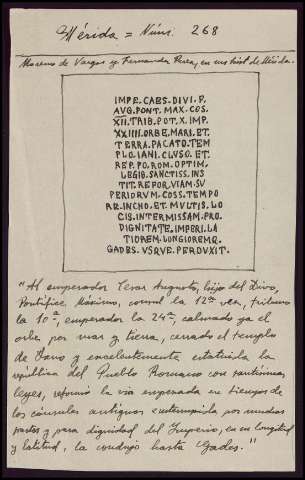 Mérida = Núm. 268
Moreno de Vargas y Fernandez Perez, en sus hist. de Mérida.
IMPE. CAES. DIVI. F.
AVG. PONT. MAX. COS.
XII. TRIB. POT. X. IMP.
XXIIII. ORBE. MARI. ET.
TERRA. PACATO. TEM
PLO. IANI. CLVSO. ET.
REP. PO. ROM. OPTIM.
LEGIB. SANCTISS. INS
TIT. REFOR. VIAM. SV
PERIORVM. COSS. TEMPO
RE. INCHO. ET. MVLTIS. LO
CIS. INTERMISSAM. PRO.
DIGNITATE. IMPERI. LA
TIOREM. LONGIOREMQ.
GADES. VSQVE. PERDVXIT.
"Al emperador Cesar Augusto, hijo del Divo,
Pontifice Máximo, consul la 12ª vez, tribuno
la 10ª, emperador la 24ª, calmado ya el
orbe por mar y tierra, cerrado el templo
de Jano y excelentemente instituida la
republica del Pueblo Romano con santísimas
leyes, reformó la via empezada en tiempos de
los cónsules antiguos e interrumpida por muchas
partes y para dignidad del Imperio, en su longitud
y latitud, la condujo hasta Gades."